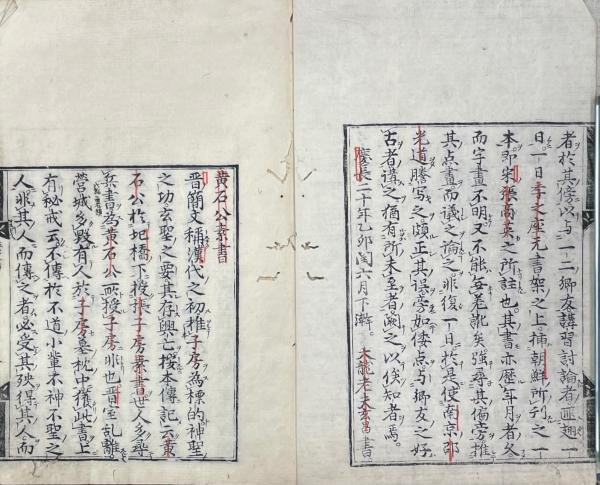 者於其傍以与一二鄉友講習討論者匪翅一
日一日李文座元書架之上挿朝鮮所刊之一
本即宋張商英之所註也其書亦歷年月者久
而字畫不明又不能每差訛矣強尋其偏旁推
其点畫而議之論之非復一日於是使南京邵
光道謄写之頗正其誤旁加倭点与鄉友之好
古者讀之猶有所未至者闕之以俟知者焉
慶長二十年乙卯閏六月下澣
木龍老夫玄昌書
黃石公素書
晋簡文稱漢代之初推子房為標的神聖
之功玄聖之要其存興亡按本傳記云黃
石公於圯橋下授張子房素書世人多尋
兵書為黃石公所授子房非也晋室乱離
營城多毀有人於子房墓枕中獲此書上
有秘戒云不傳於不道小輩不神不聖之
人非其人而傳之者必受其殃得其人而